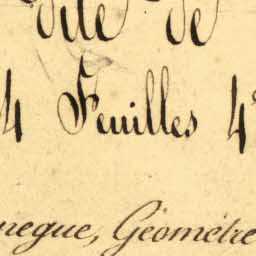 dite de
4 Feuilles 4
negue, Géométre